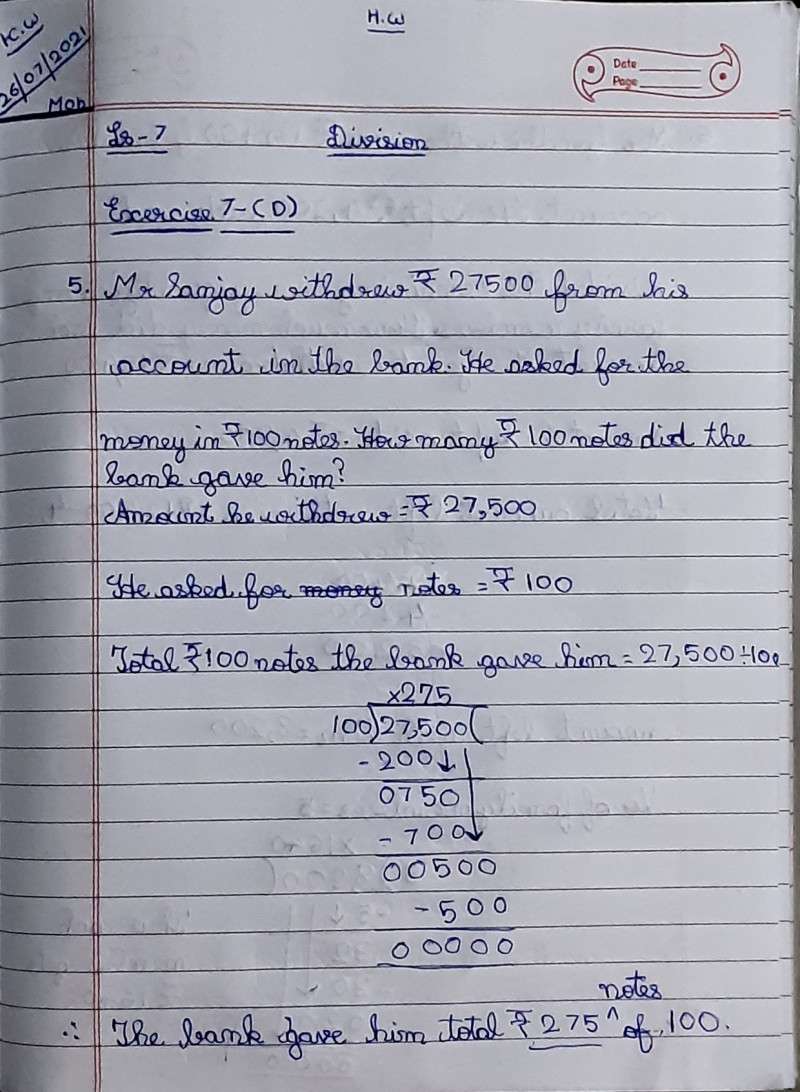 H.W
K.W
26/07/2021
Mon
Date
Page
Ls-7 Division
Excercise 7-(D)
5. Mr Sanjay withdrew ₹ 27500 from his
account in the bank. He asked for the
money in ₹100 notes. How many ₹ 100 notes did the
bank gave him?
Amount he withdrew = ₹ 27,500
He asked for money notes = ₹ 100
Total ₹100 notes the bank gave him = 27,500÷100
×275
100)27,500(
-200↓
0750
-700
00500
-500
00000
notes
∴ The bank gave him total ₹ 275 ^ of 100.